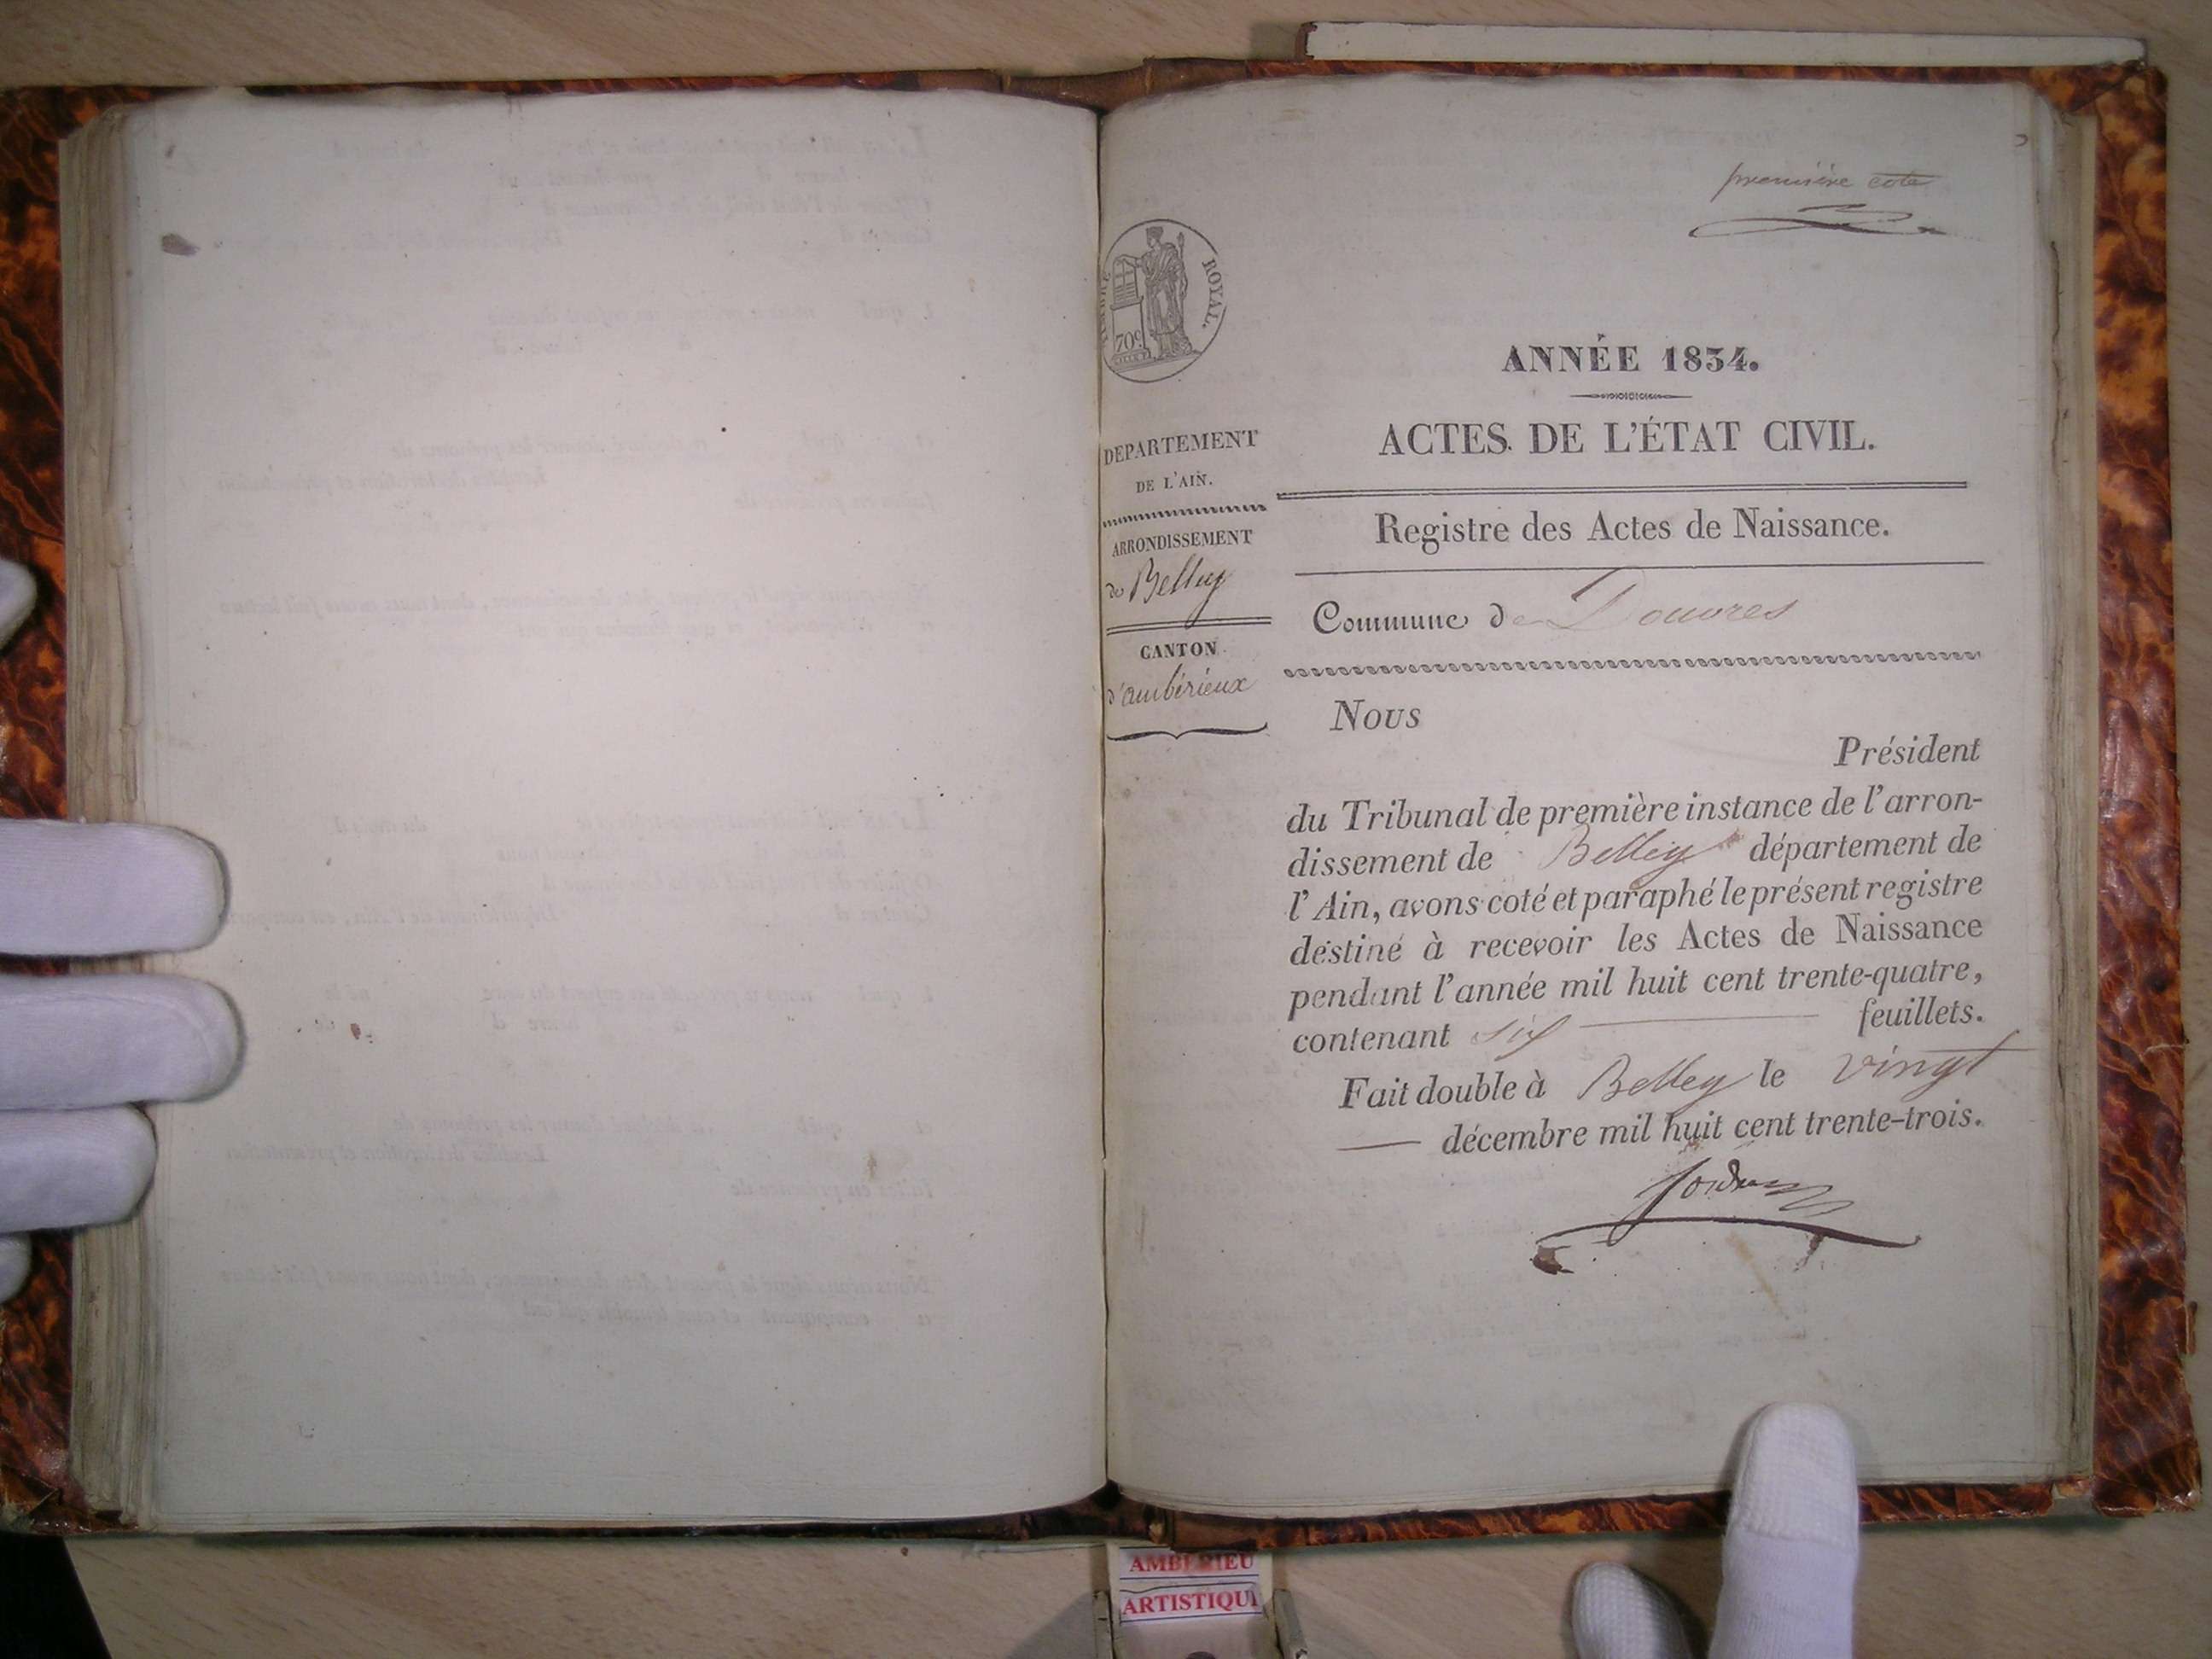 première cote
TIMBRE ROYAL.
70c
DEPARTEMENT
DE L'AIN.
ARRONDISSEMENT
de Belley
CANTON
d'ambérieux
ANNÉE 1834.
ACTES DE L'ÉTAT CIVIL.
Registre des Actes de Naissance.
Commune de Douvres
Nous
Président
du Tribunal de première instance de l'arron-
dissement de Belley département de
l'Ain, avons coté et paraphé le présent registre
destiné à recevoir les Actes de Naissance
pendant l'année mil huit cent trente-quatre,
contenant six feuillets.
Fait double à Belley le vingt
décembre mil huit cent trente-trois.
AMBERIEU
ARTISTIQUE